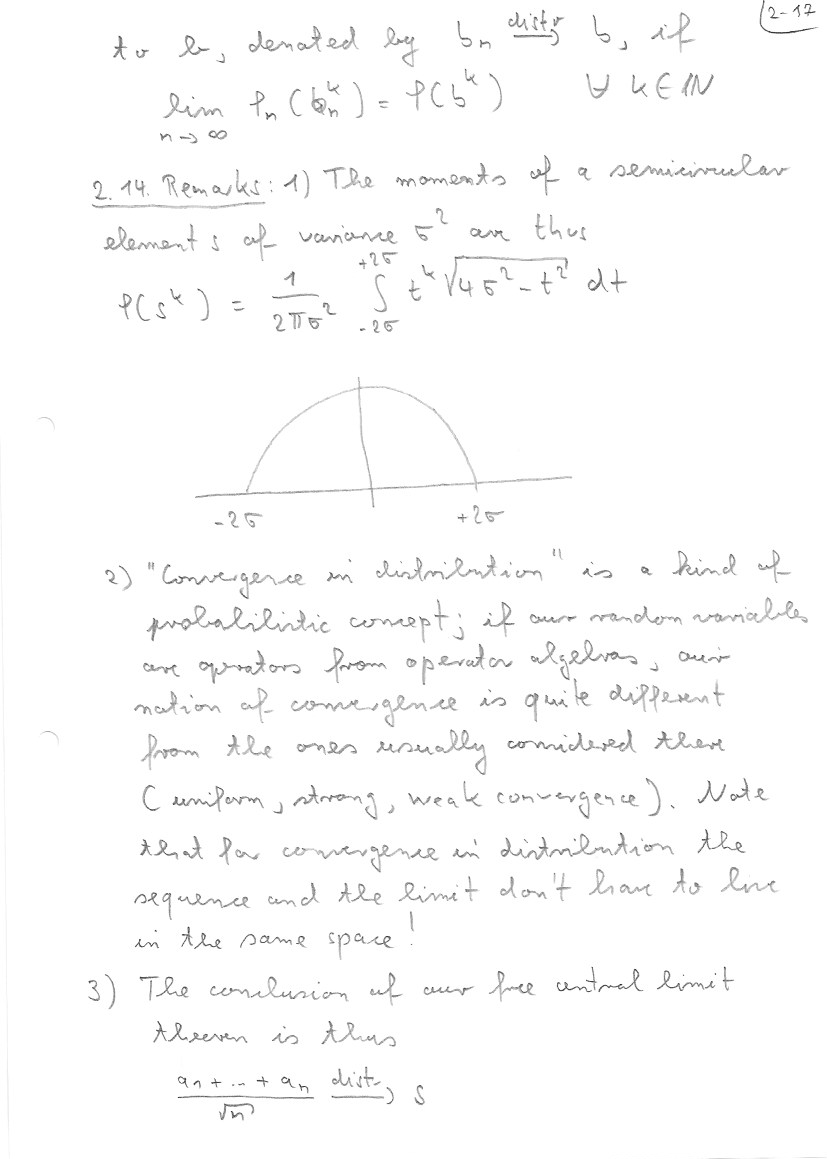 2-17
to b, denoted by bₙ distr→ b, if
lim φₙ(bₙᵏ) = φ(bᵏ) ∀ k∈ℕ
n→∞
2.14. Remarks: 1) The moments of a semicircular
element s of variance σ² are thus
φ(sᵏ) = 1/(2πσ²) ∫_{-2σ}^{+2σ} tᵏ √(4σ²-t²) dt
-2σ +2σ
2) "Convergence in distribution" is a kind of
probabilistic concept; if our random variables
are operators from operator algebras, our
notion of convergence is quite different
from the ones usually considered there
(uniform, strong, weak convergence). Note
that for convergence in distribution the
sequence and the limit don't have to live
in the same space!
3) The conclusion of our free central limit
theorem is thus
(a₁+...+aₙ)/√n dist→ s